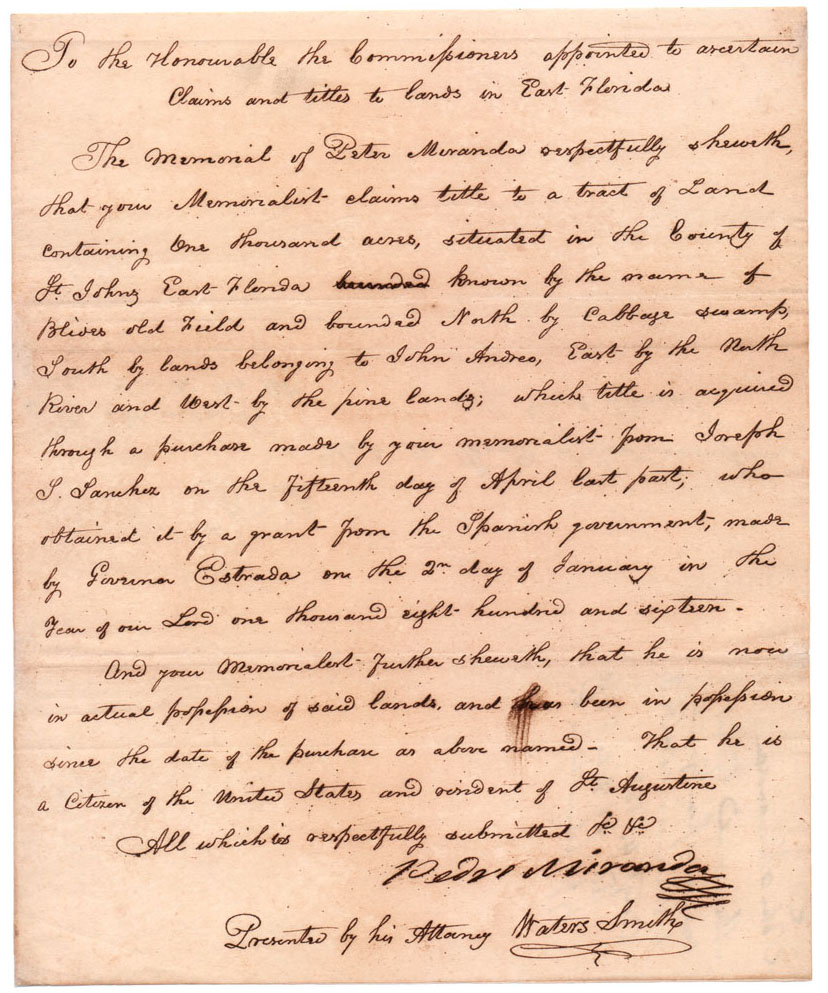 To the Honourable the Commissioners appointed to ascertain
Claims and titles to lands in East Florida
The Memorial of Peter Miranda respectfully sheweth,
that your Memorialist claims title to a tract of Land
containing One thousand acres, situated in the County of
St. Johns East Florida bounded known by the name of
Blives old Field and bounded North by Cabbage swamp,
South by lands belonging to John Andreo, East by the North
River and West by the pine lands; which title is acquired
through a purchase made by your memorialist from Joseph
S. Sanchez on the Fifteenth day of April last past; who
obtained it by a grant from the Spanish government, made
by Governor Estrada on the 2n. day of January in the
Year of our Lord one thousand eight hundred and sixteen -
And your Memorialist further sheweth, that he is now
in actual possession of said lands, and has been in possession
since the date of the purchase as above named - That he is
a Citizen of the United States and resident of St. Augustine
All which is respectfully submitted &c. &c.
Pedro Miranda
Presented by his Attorney Waters Smith